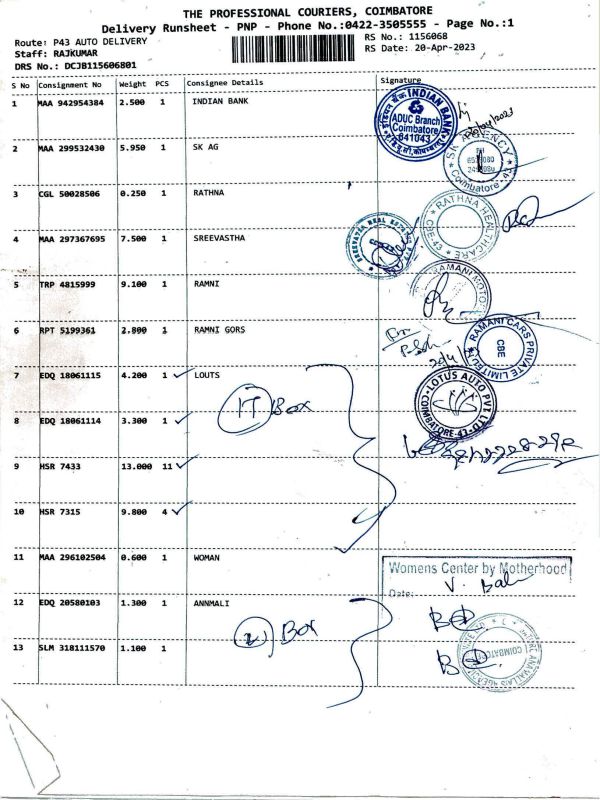 THE PROFESSIONAL COURIERS, COIMBATORE
Delivery Runsheet - PNP - Phone No.:0422-3505555 - Page No.:1
Route: P43 AUTO DELIVERY
RS No.: 1156068
Staff: RAJKUMAR
RS Date: 20-Apr-2023
DRS No.: DCJB115606801
S No Consignment No Weight PCS Consignee Details Signature
1 MAA 942954384 2.500 1 INDIAN BANK
INDIAN BANK
ADUC Branch
Coimbatore
641043
2 MAA 299532430 5.950 1 SK AG
SK AGENCY
Coimbatore
3 CGL 50028506 0.250 1 RATHNA
RATHNA HEALTHCARE
CBE-43
4 MAA 297367695 7.500 1 SREEVASTHA
SREEVATSA REAL ESTATE
5 TRP 4815999 9.100 1 RAMNI
RAMANI MOTO
6 RPT 5199361 2.800 1 RAMNI GORS
RAMANI CARS PRIVATE LIMITED
CBE
7 EDQ 18061115 4.200 1 LOUTS
LOTUS AUTO PVT LTD
COIMBATORE-43
8 EDQ 18061114 3.300 1
Box
9 HSR 7433 13.000 11
10 HSR 7315 9.800 4
11 MAA 296102504 0.600 1 WOMAN
Womens Center by Motherhood
Date:
12 EDQ 20580103 1.300 1 ANNMALI
Box
13 SLM 318111570 1.100 1